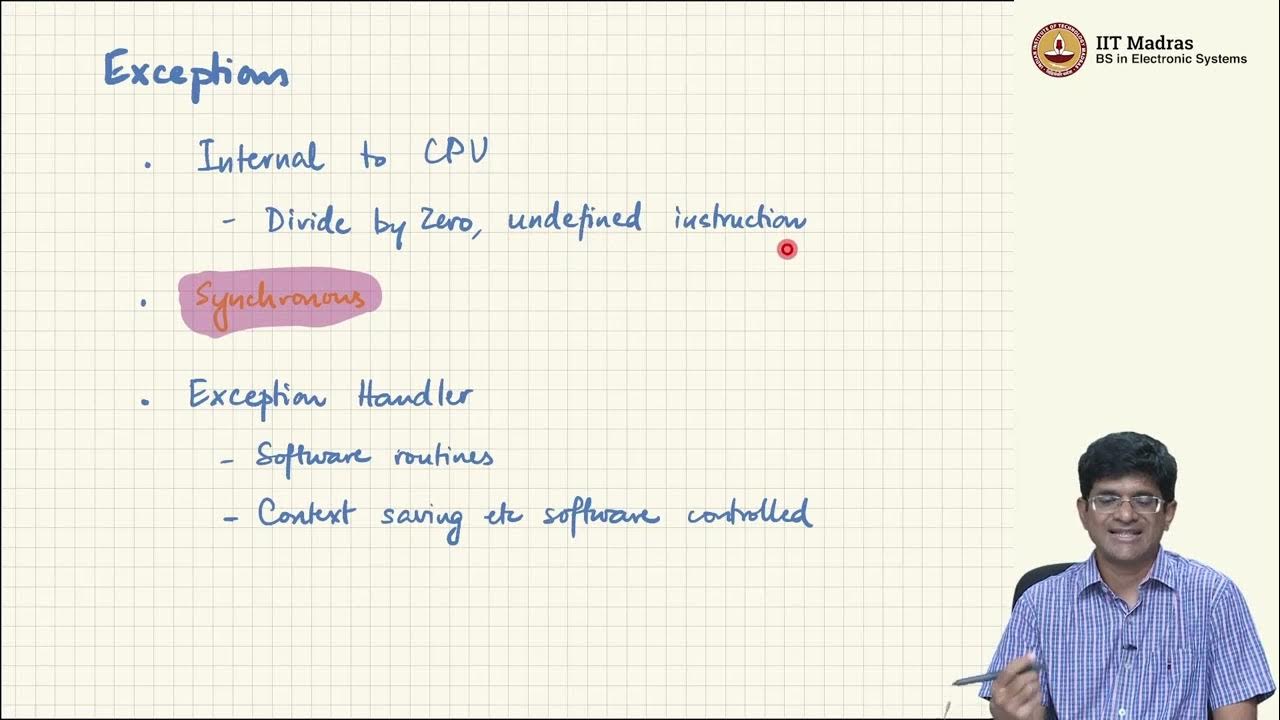 Exceptions
. Internal to CPU
- Divide by Zero, undefined instruction
. Synchronous
. Exception Handler
- Software routines
- Context saving etc software controlled
IIT Madras
BS in Electronic Systems